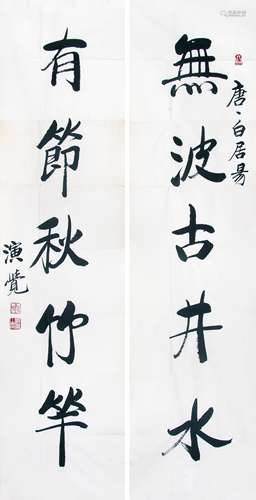 無波古井水
唐、白居易
有節秋竹竿
演覺